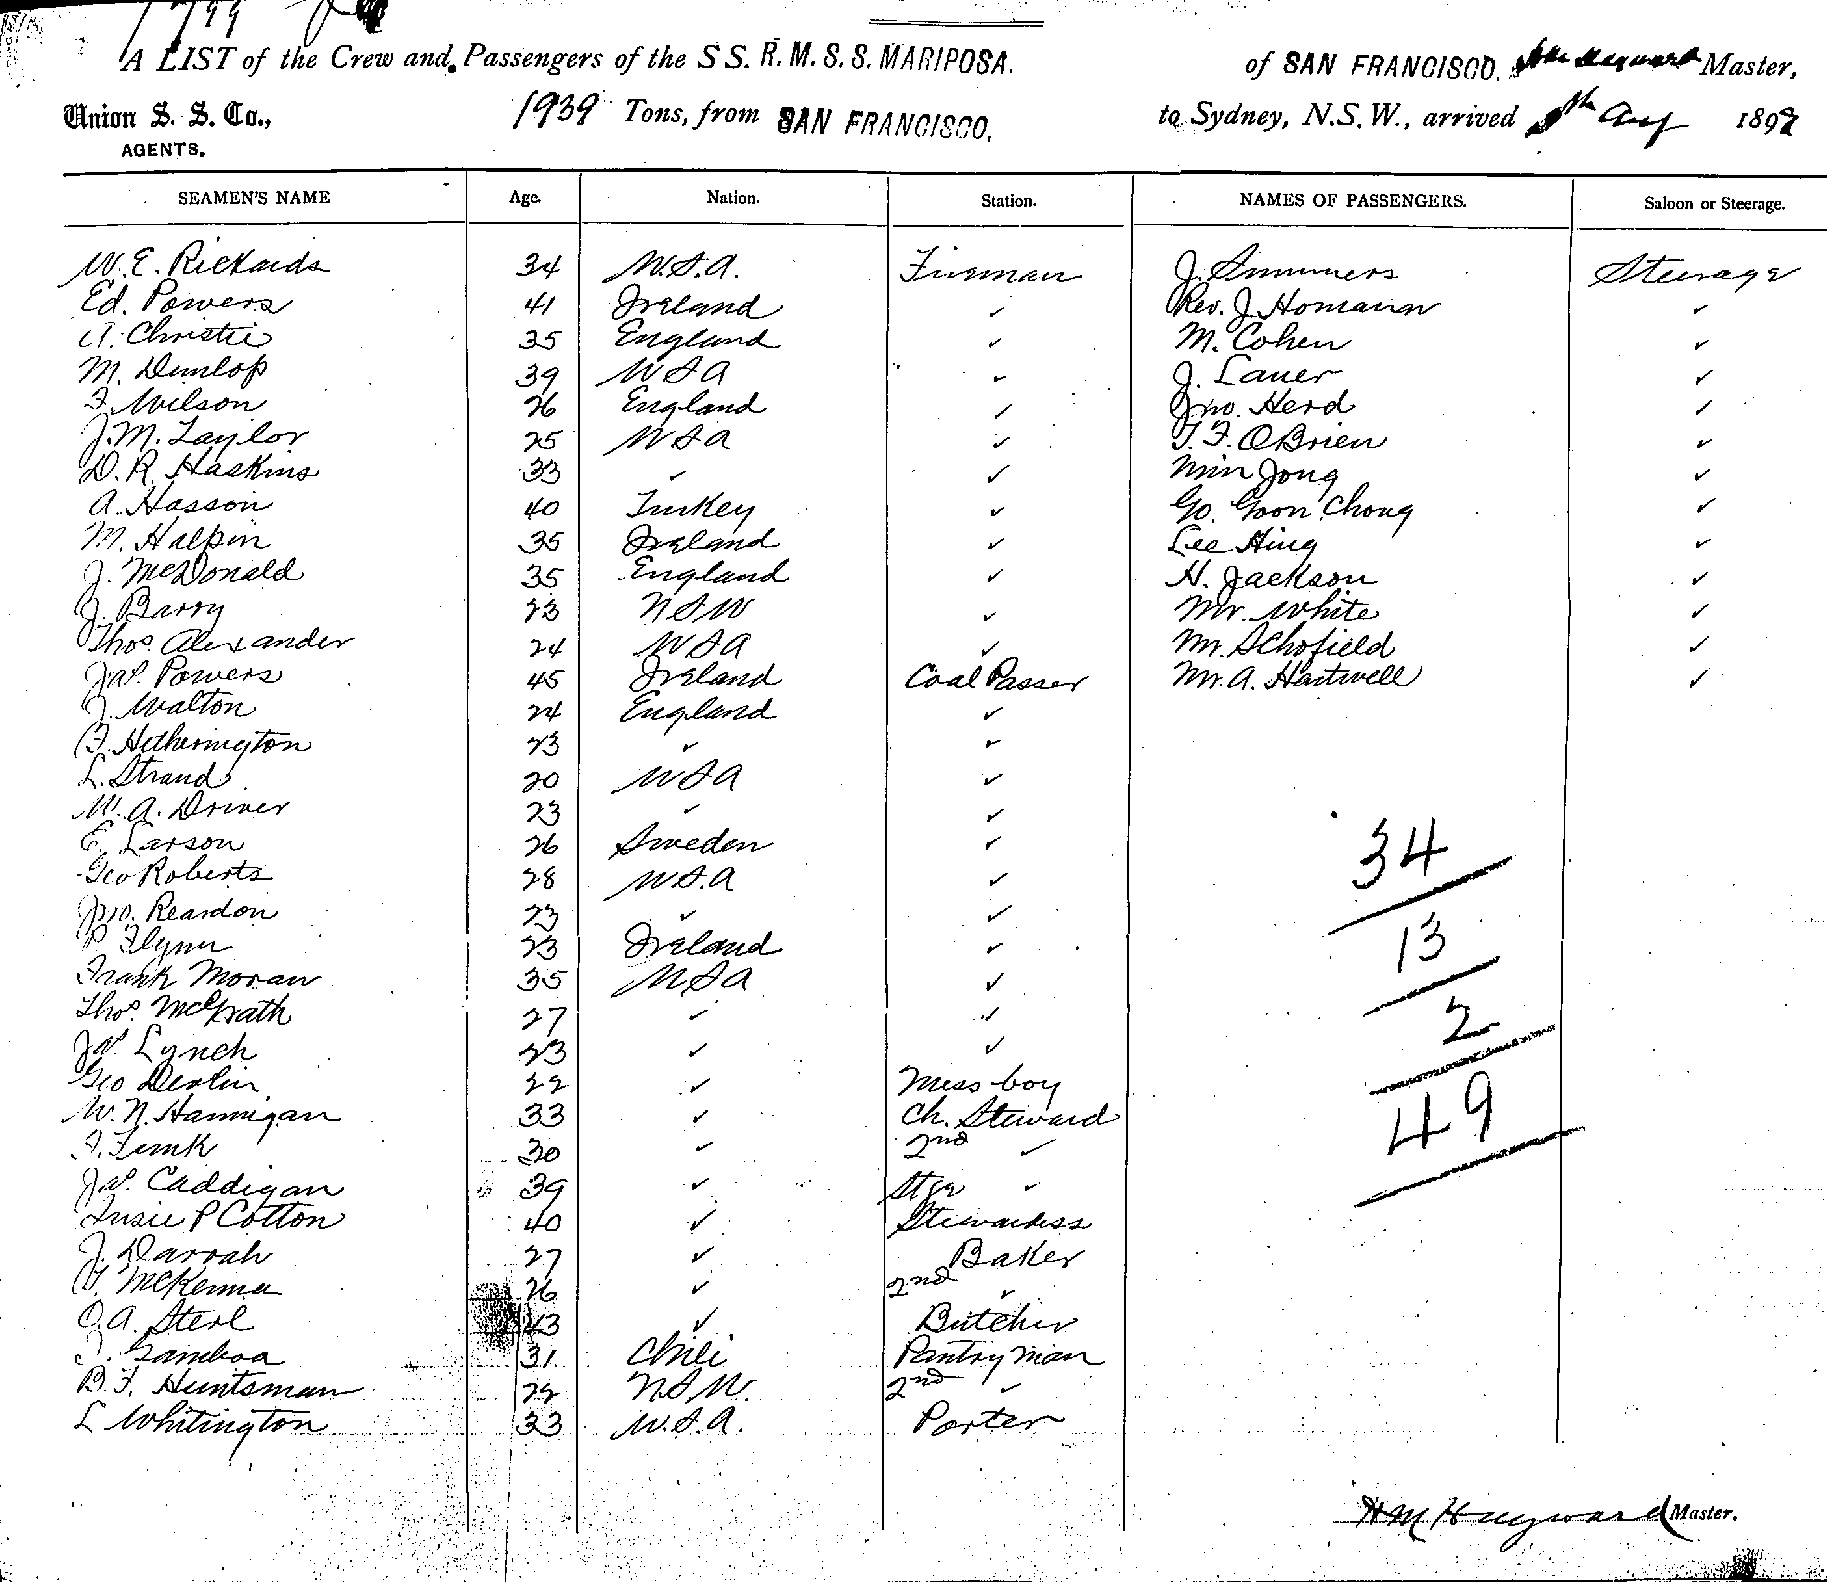 A LIST of the Crew and Passengers of the S S. R. M. S. S. MARIPOSA. of SAN FRANCISCO, Master,
Union S. S. Co., 1939 Tons, from SAN FRANCISCO, to Sydney, N.S.W., arrived Aug 189
AGENTS.
SEAMEN'S NAME Age. Nation. Station. NAMES OF PASSENGERS. Saloon or Steerage.
W. E. Rickards 34 U.S.A. Fireman J. Summers Steerage
Ed. Powers 41 Ireland ✓ Rev. J. Homann ✓
A. Christie 35 England ✓ M. Cohen ✓
M. Dunlop 39 USA ✓ J. Lauer ✓
F. Wilson 26 England ✓ Jno. Herd ✓
J. M. Taylor 25 USA ✓ T. F. OBrien ✓
D. R. Haskins 33 ✓ ✓ Min Jong ✓
A. Hasson 40 Turkey ✓ Go. Goon Chong ✓
M. Halpin 35 Ireland ✓ Lee Hing ✓
J. McDonald 35 England ✓ H. Jackson ✓
J. Barry 23 NSW ✓ Mr. White ✓
Thos. Alexander 24 USA ✓ Mr. Schofield ✓
Jas. Powers 45 Ireland Coal Passer Mr. A. Hartwell ✓
J. Walton 24 England ✓
F. Hetherington 23 ✓ ✓
L. Strand 20 USA ✓
W. A. Driver 23 ✓ ✓
E. Larson 26 Sweden ✓
Geo Roberts 28 US.A ✓
Jno. Reardon 23 ✓ ✓
P Flynn 23 Ireland ✓
Frank Moran 35 USA ✓
Thos. McGrath 27 ✓ ✓
Jas. Lynch 23 ✓ ✓
Geo Devlin 22 ✓ Mess boy
W. N. Hannigan 33 ✓ Ch. Steward
Funk 30 ✓ 2nd ✓
Jas. Caddigan 39 ✓ Stge ✓
Susie P Cotton 40 ✓ Stewardess
J. Darrah 27 ✓ Baker
McKenna 26 ✓ 2nd ✓
A. Sterl 43 ✓ Butcher
Gamboa 31 Chili Pantryman
B. F. Huntsman 22 N.S.W. 2nd ✓
L Whitington 33 U.S.A. Porter
34
13
2
49
H M Hayward Master.